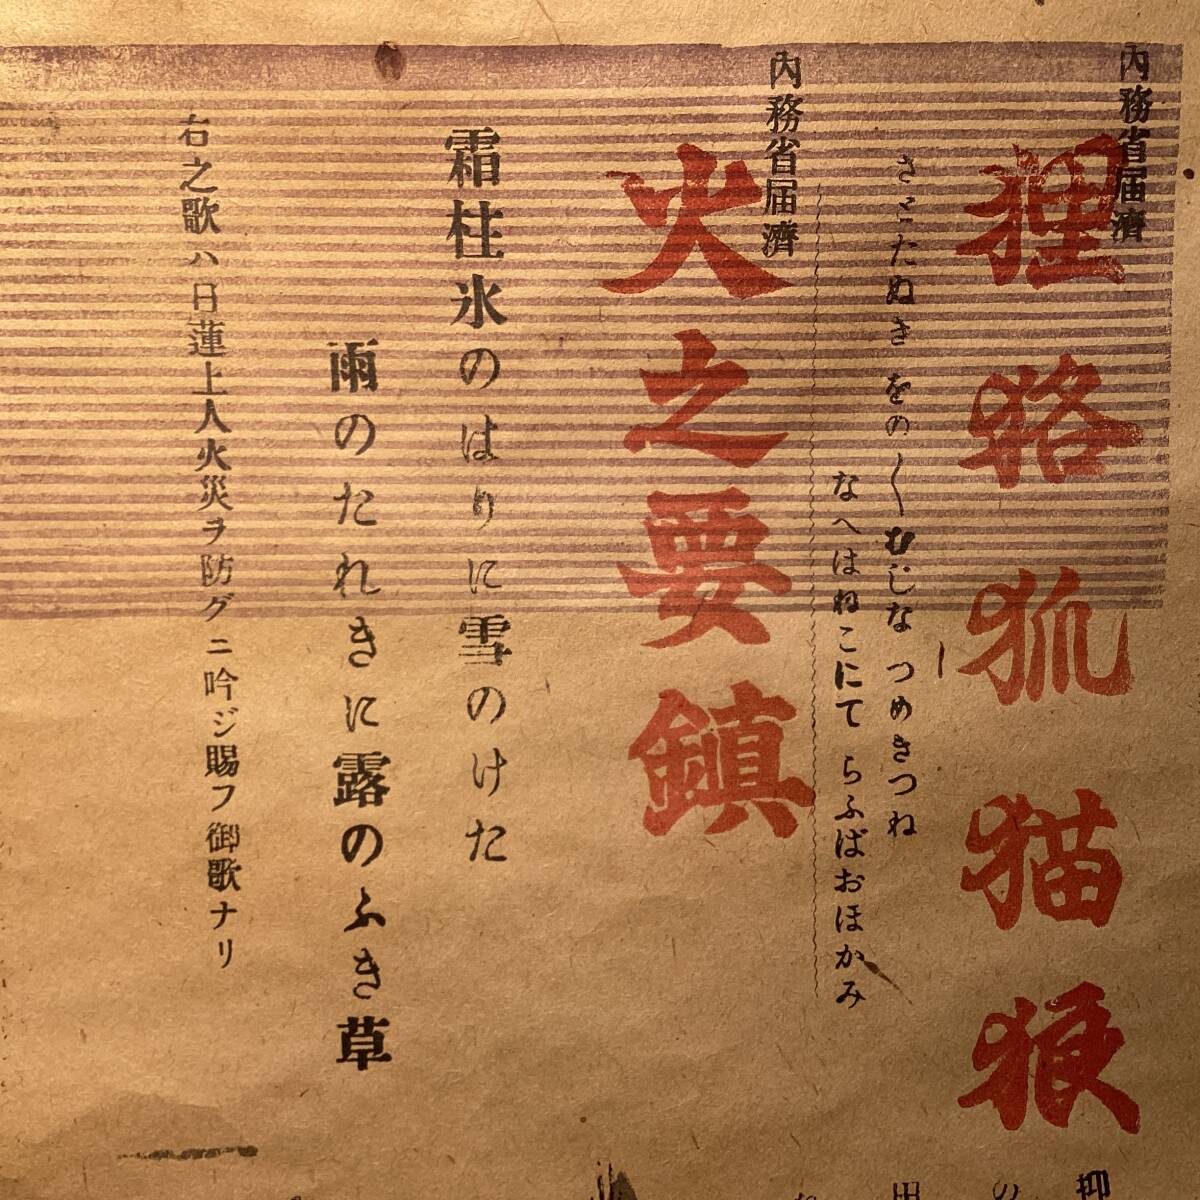 内務省届濟
狸狢狐猫狼
さとたぬき をのゝくむじな つめきつね
なへはねこにて らふばおほかみ
内務省届濟
火之要鎮
霜柱氷のはりに雪のけた
雨のたれきに露のふき草
右之歌ハ日蓮上人火災ヲ防グニ吟ジ賜フ御歌ナリ